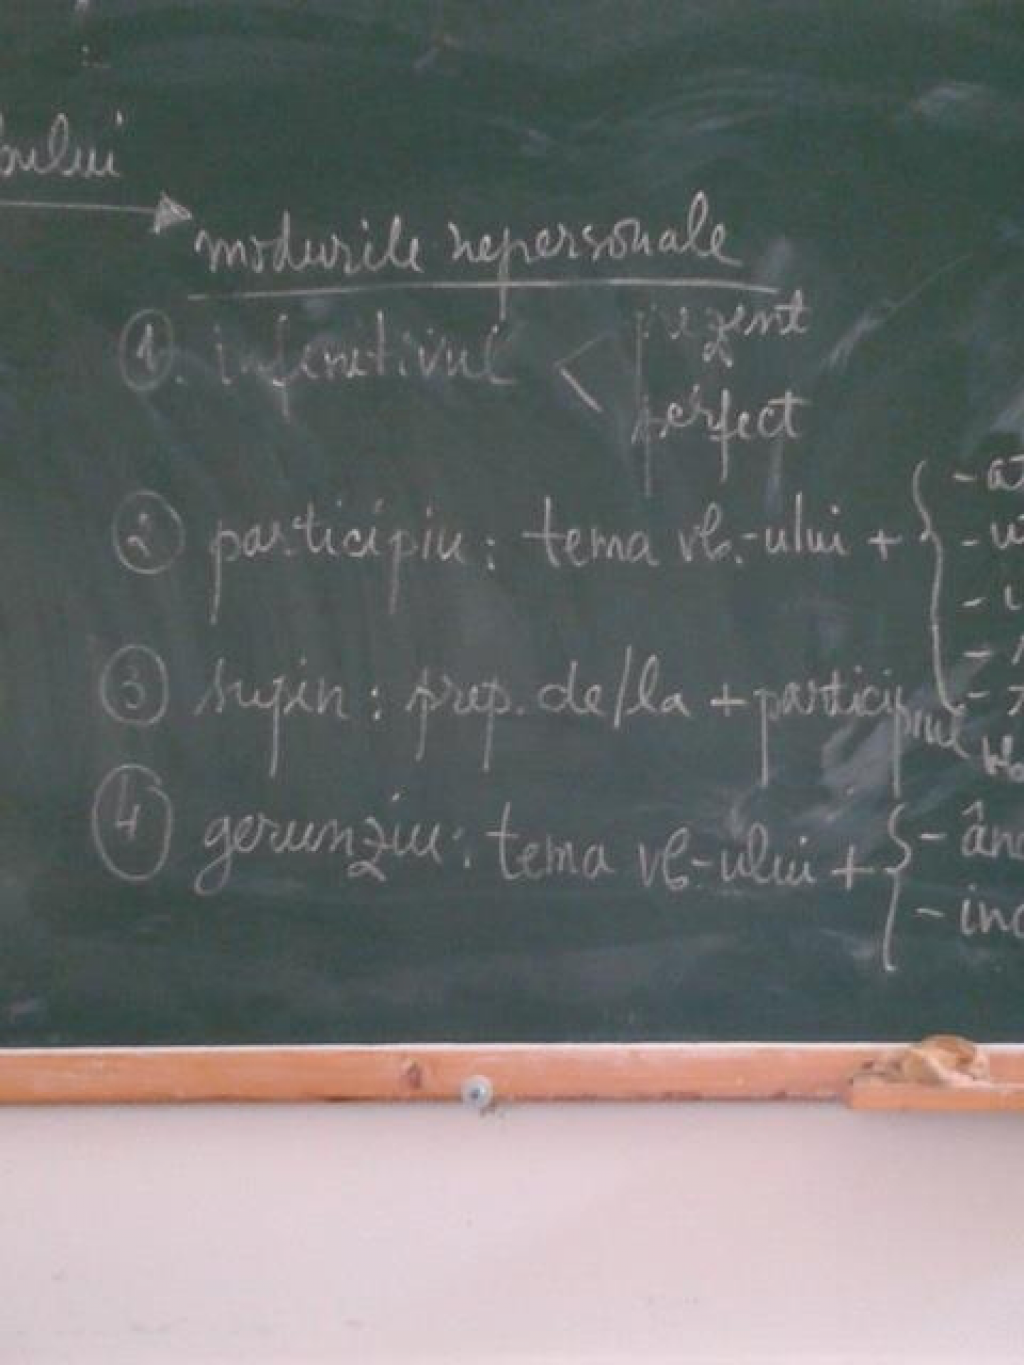 modurile nepersonale
1. infinitivul < prezent
perfect
2 participiu: tema vb.-ului + { - at
3 supin: prep. de/la + participiul
4 gerunziu: tema vb-ului + { - ând
- ind